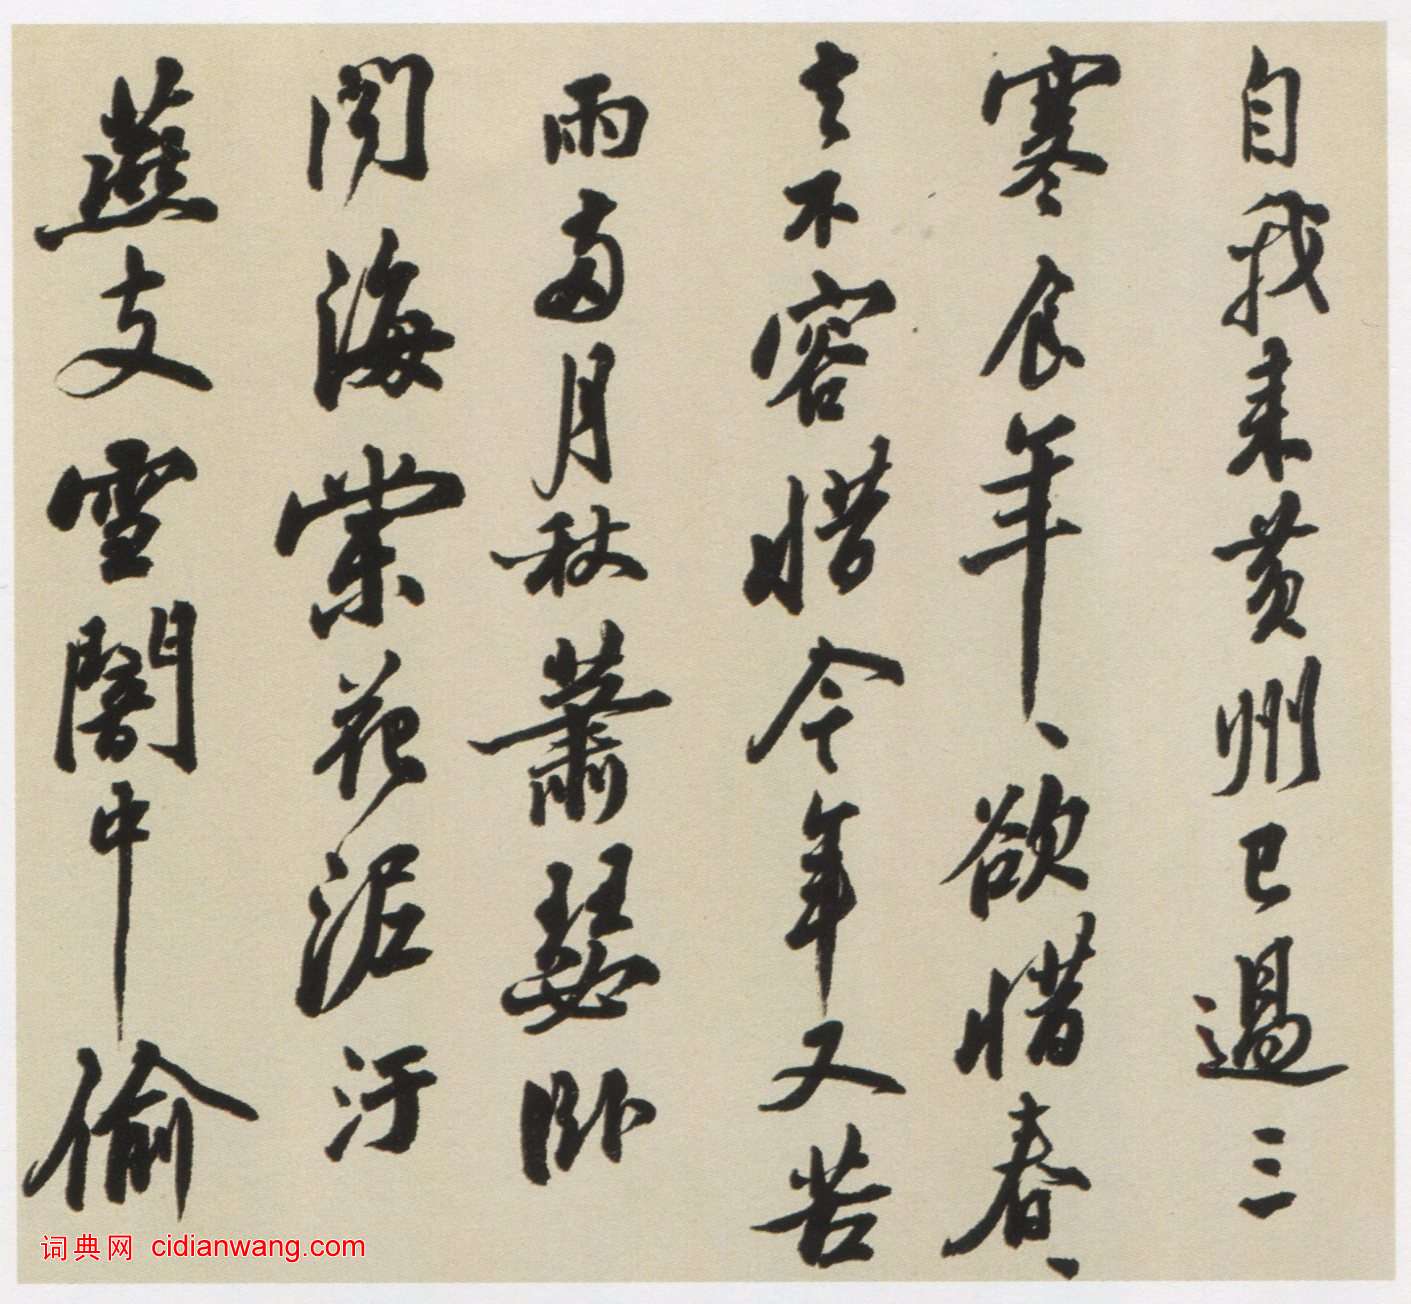 自我来黄州已過三
寒食年、欲惜春、
去不容惜今年又苦
雨兩月秋蕭瑟卧
聞海棠花泥汙
燕支雪闇中偷
词典网 cidianwang.com